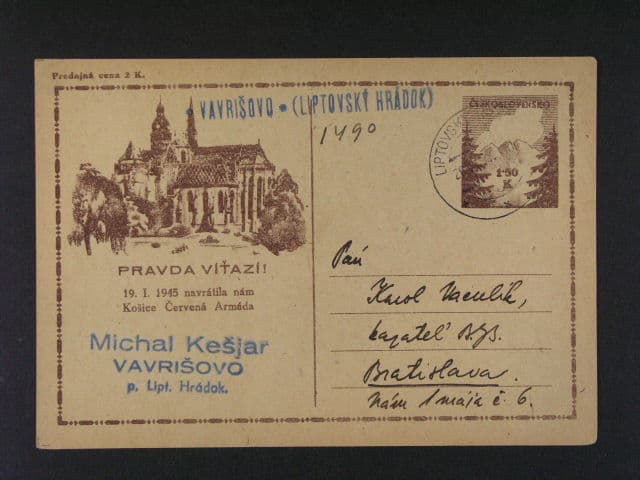 Predajná cena 2 K.
• VAVRIŠOVO • (LIPTOVSKÝ HRÁDOK)
1490
ČESKOSLOVENSKO
LIPTOVSK
1·50
K
PRAVDA VÍŤAZÍ!
19. I. 1945 navrátila nám
Košice Červená Armáda
Michal Kešjar
VAVRIŠOVO
p. Lipt. Hrádok.
Pán
Karol Vaculík,
Bratislava.
Nám 1 mája č. 6.